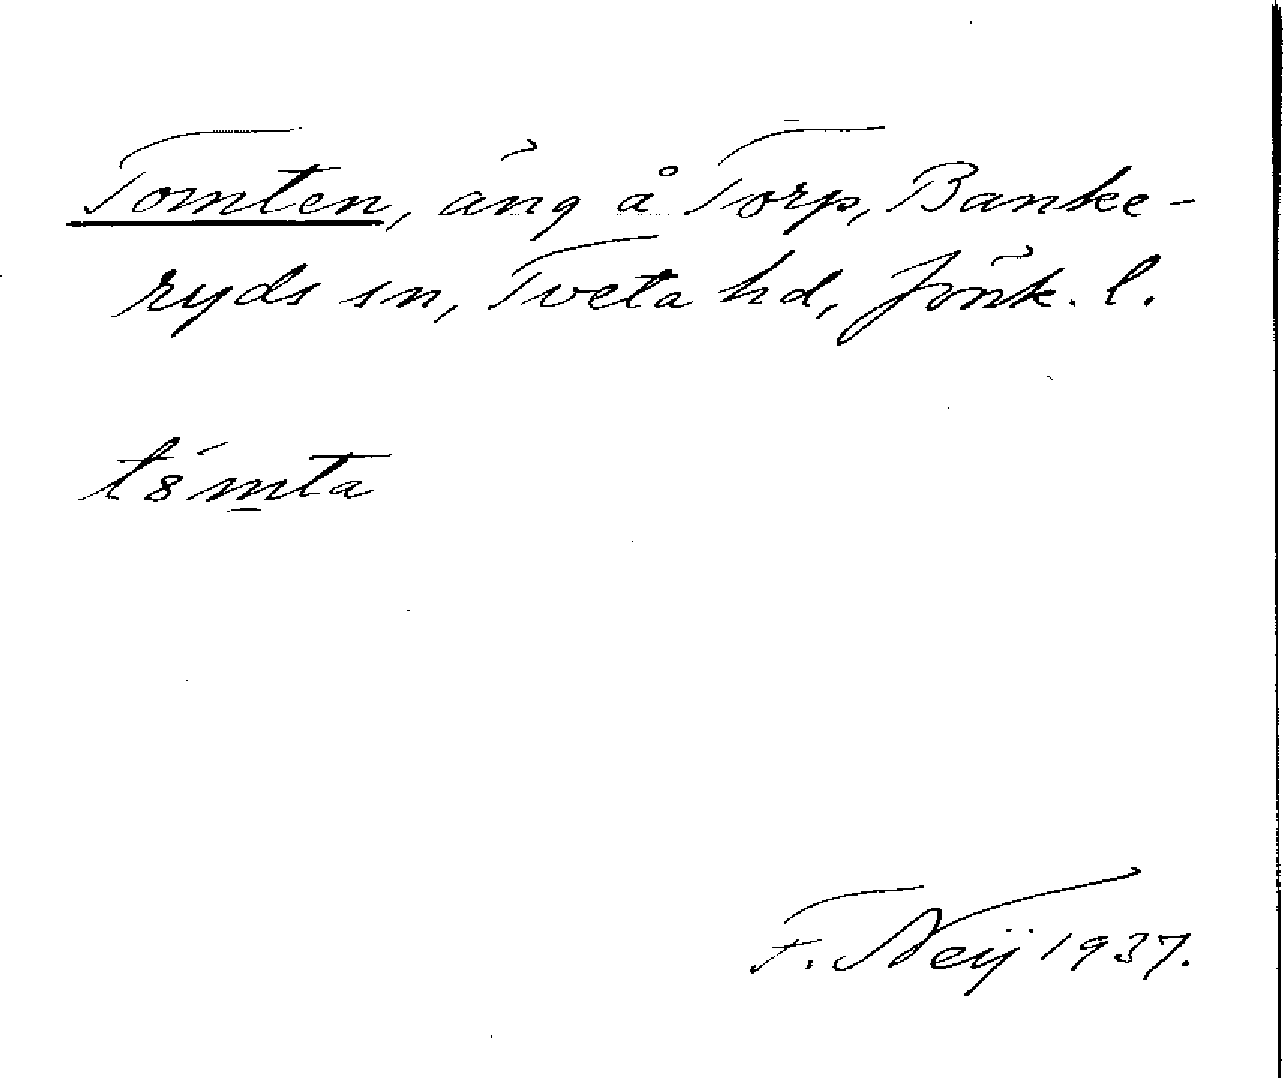 Tomten, äng å Torp, Banke-
ryds sn, Tveta hd, Jönk. l.
t8́m̲ta
F. Neij 1937.